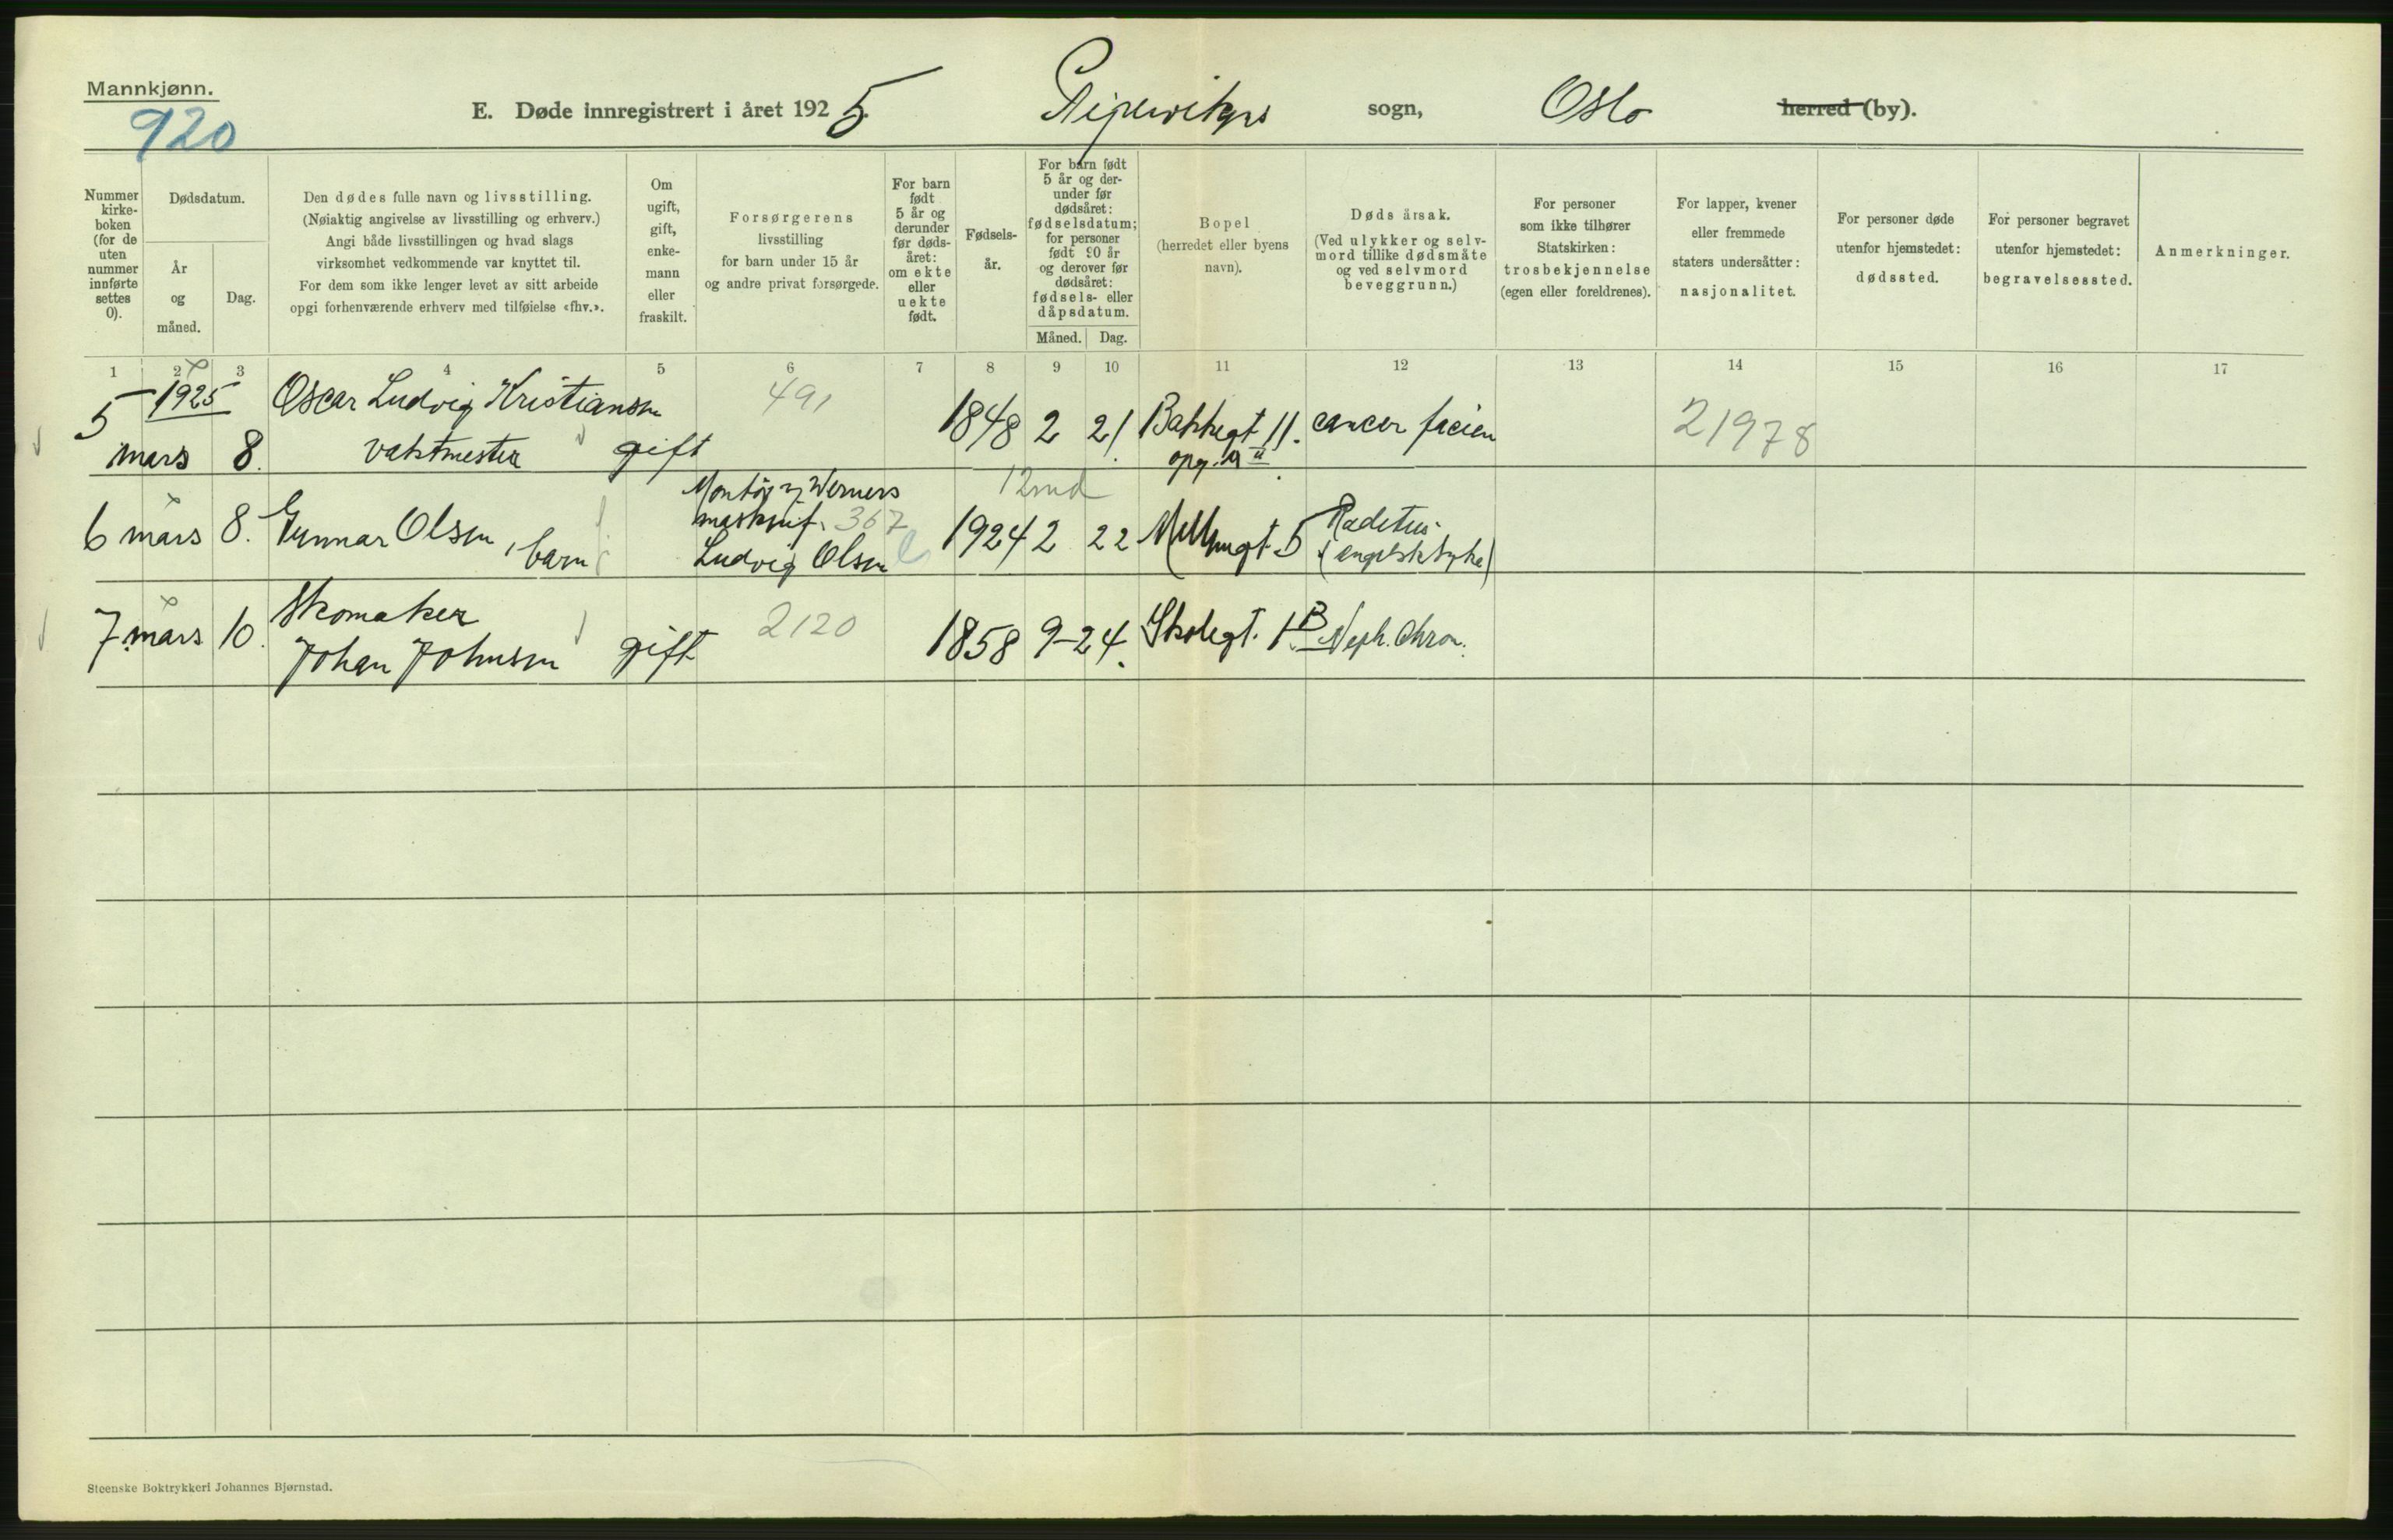 Mannkjønn.
920
E. Døde innregistrert i året 1925. sogn, Oslo herred (by).
Nummer kirke- boken (for de uten nummer innførte settes 0).
Dødsdatum.
År og måned.
Dag.
Den dødes fulle navn og livsstilling.
(Nøiaktig angivelse av livsstilling og erhverv.)
Angi både livsstillingen og hvad slags
virksomhet vedkommende var knyttet til.
For dem som ikke lenger levet av sitt arbeide
opgi forhenværende erhverv med tilføielse «fhv.».
Om ugift, gift, enke- mann eller fraskilt.
Forsørgerens
livsstilling
for barn under 15 år
og andre privat forsørgede.
For barn født 5 år og derunder før døds- året: om ekte eller uekte født.
Fødsels- år.
For barn født 5 år og der- under før dødsåret: fødselsdatum; for personer født 90 år og derover før dødsåret: fødsels- eller dåpsdatum.
Måned. Dag.
Bopel
(herredet eller byens
navn).
Dødsårsak.
(Ved ulykker og selv-
mord tillike dødsmåte
og ved selvmord
beveggrunn.)
For personer
som ikke tilhører
Statskirken:
trosbekjennelse
(egen eller foreldrenes).
For lapper, kvener
eller fremmede
staters undersåtter:
nasjonalitet.
For personer døde
utenfor hjemstedet:
dødssted.
For personer begravet
utenfor hjemstedet:
begravelsessted.
Anmerkninger.
1 2 3 4 5 6 7 8 9 10 11 12 13 14 15 16 17
5 1925 Oscar Ludvig Kristiansen 491 1848 2 21. Bakkegt 11. cancer faciei 21978
mars 8. vaktmester gift opg.
12 md
6 mars 8. Gunnar Olsen, barn Montør v. Werners
maskinf. 367
Ludvig Olsen 1924 2 22 5 (engelsk syke)
7 mars 10. Skomaker
Johan Johnsen gift 2120 1858 9-24. Skolegt. 1B Neph. Chron.
Steenske Boktrykkeri Johannes Bjørnstad.